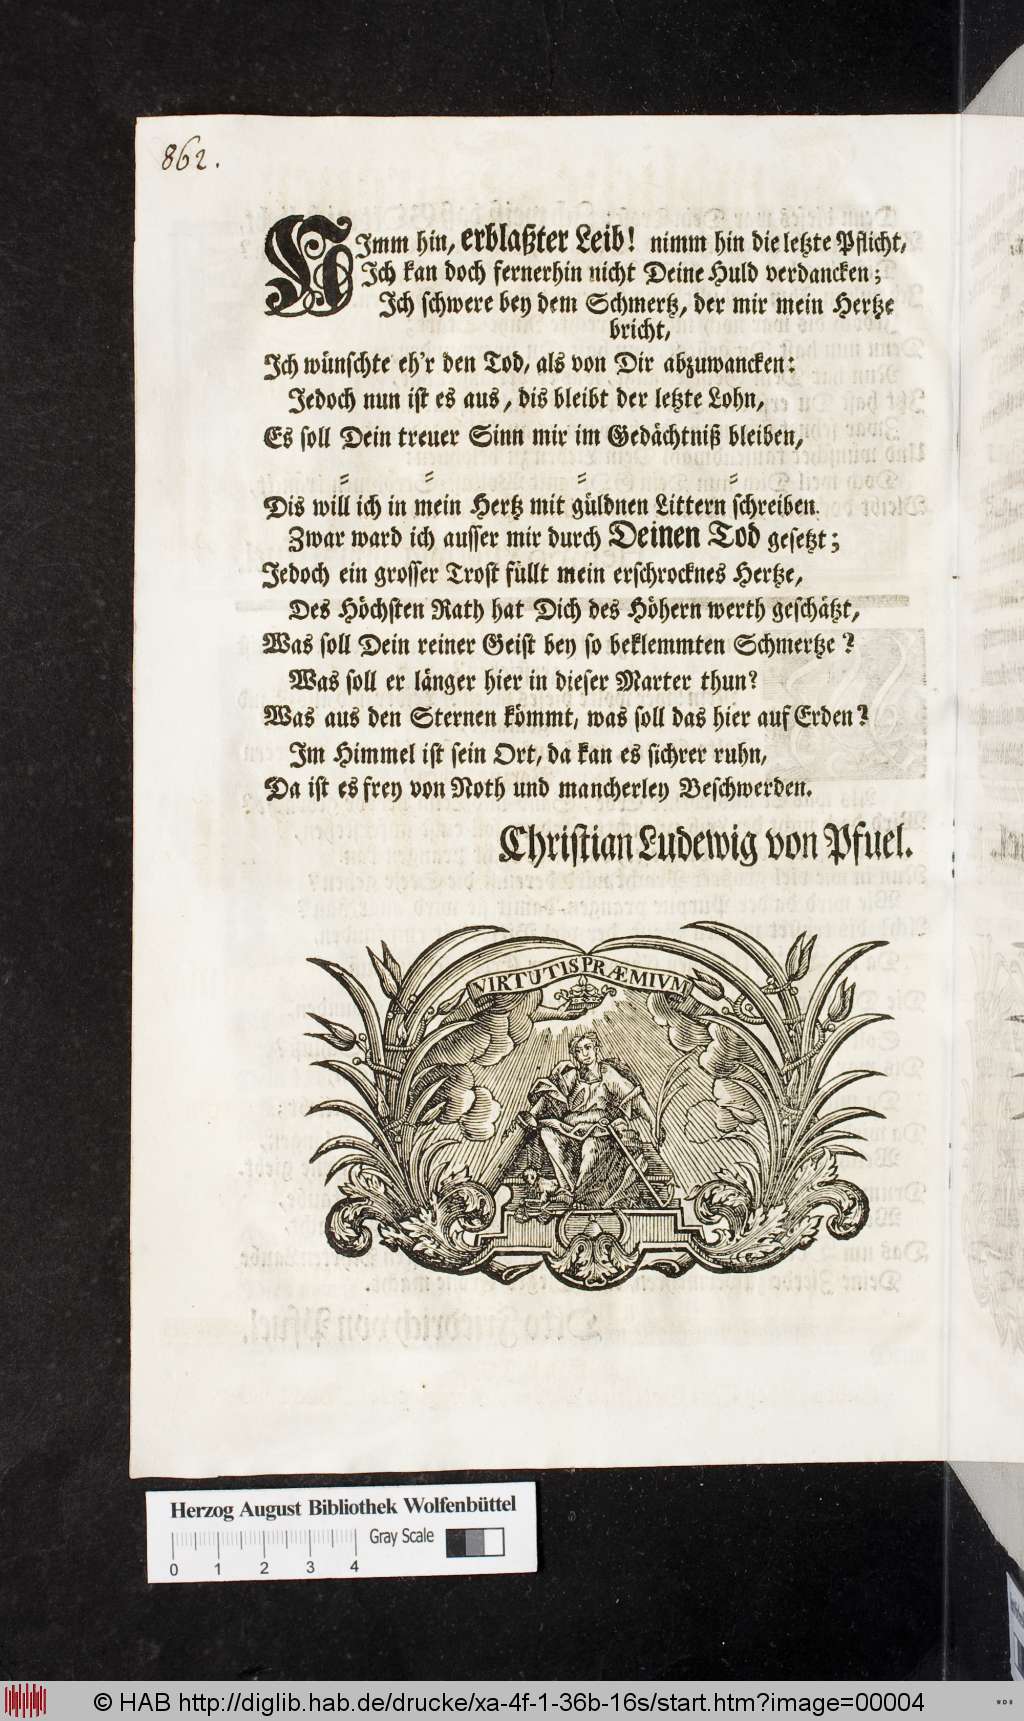 862.
NImm hin, erblaßter Leib! nimm hin die letzte Pflicht,
Ich kan doch fernerhin nicht Deine Huld verdancken;
Ich schwere bey dem Schmertz, der mir mein Hertze
bricht,
Ich wünschte eh'r den Tod, als von Dir abzuwancken:
Jedoch nun ist es aus, dis bleibt der letzte Lohn,
Es soll Dein treuer Sinn mir im Gedächtniß bleiben,
= = = =
Dis will ich in mein Hertz mit güldnen Littern schreiben.
Zwar ward ich ausser mir durch Deinen Tod gesetzt;
Jedoch ein grosser Trost füllt mein erschrocknes Hertze,
Des Höchsten Rath hat Dich des Höhern werth geschätzt,
Was soll Dein reiner Geist bey so beklemmten Schmertze?
Was soll er länger hier in dieser Marter thun?
Was aus den Sternen kömmt, was soll das hier auf Erden?
Im Himmel ist sein Ort, da kan es sichrer ruhn,
Da ist es frey von Noth und mancherley Beschwerden.
Christian Ludewig von Pfuel.
VIRTUTIS PRÆMIVM
Herzog August Bibliothek Wolfenbüttel
Gray Scale
0 1 2 3 4
© HAB http://diglib.hab.de/drucke/xa-4f-1-36b-16s/start.htm?image=00004